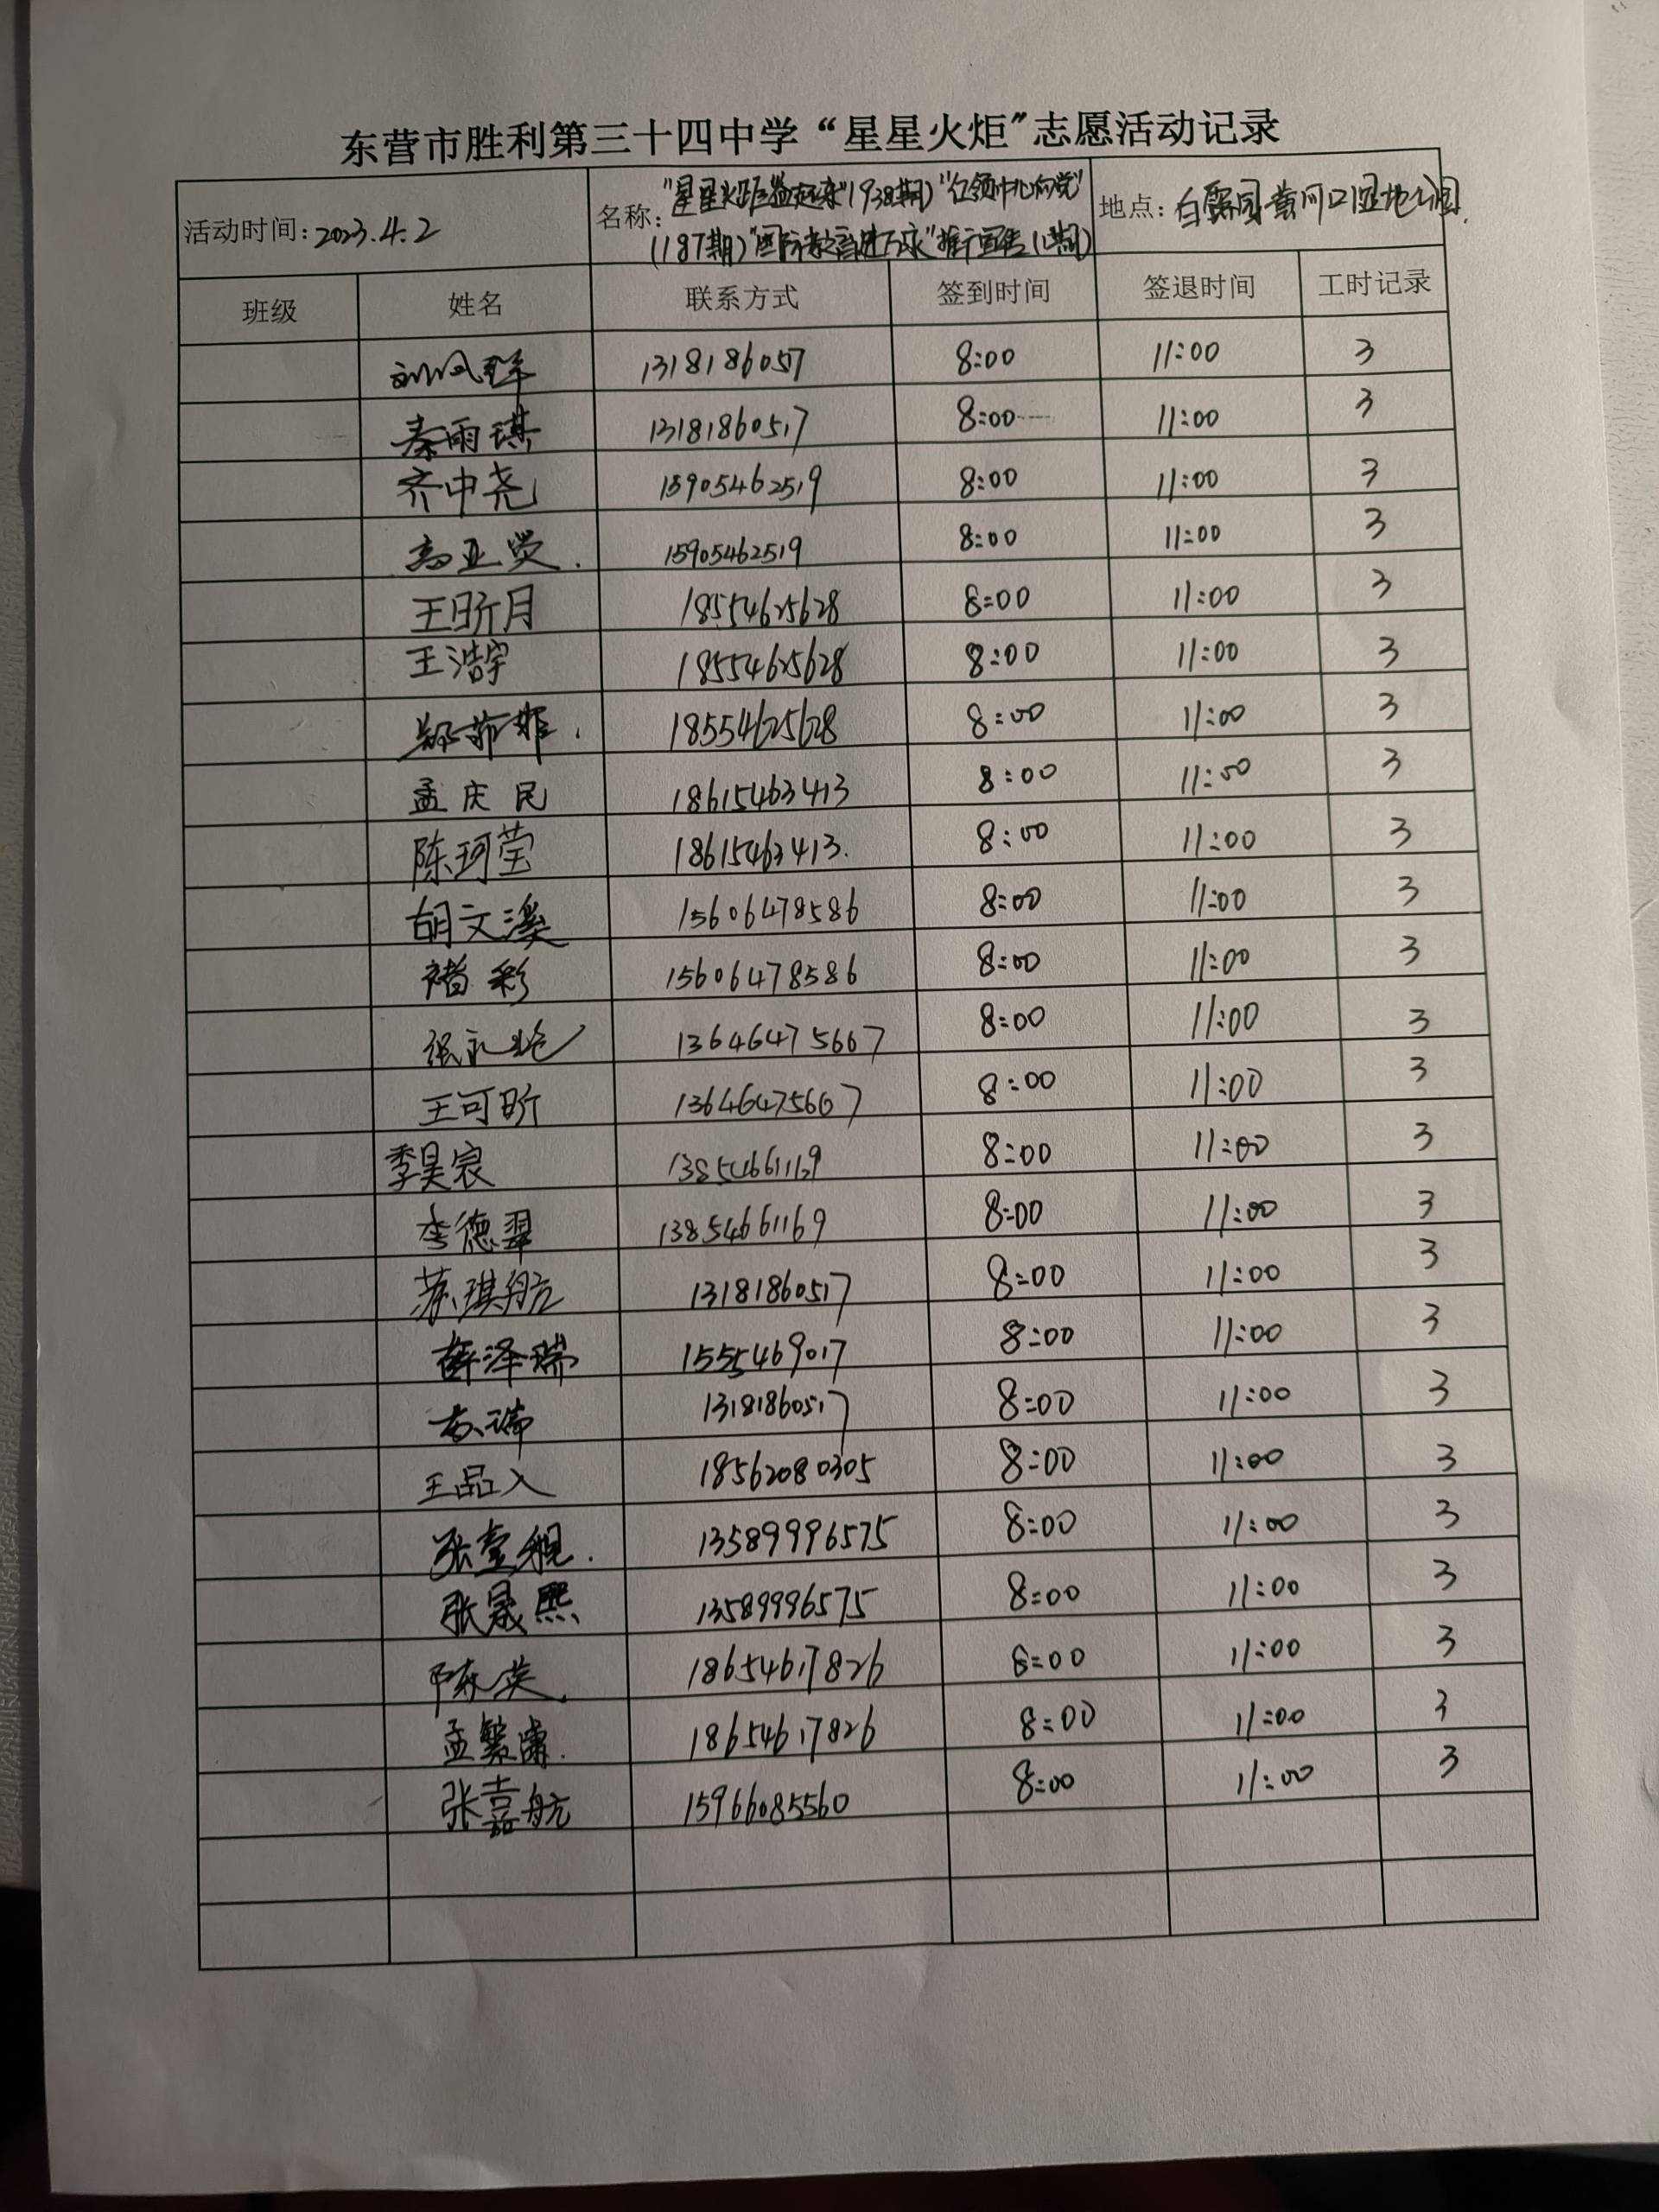 东营市胜利第三十四中学“星星火炬”志愿活动记录
活动时间:2023.4.2 名称:“星星火炬益起来”(938期)“红领巾心向党” 地点:白鹭园黄河口湿地公园.
(187期)“国防教育进万家”推广宣传
班级 姓名 联系方式 签到时间 签退时间 工时记录
刘凤 1318186057 8:00 11:00 3
秦雨琪 13181860517 8:00 11:00 3
齐中尧 15905462519 8:00 11:00 3
高亚 15905462519 8:00 11:00 3
王昕月 18554625628 8:00 11:00 3
王浩宇 18554625628 8:00 11:00 3
郑茹雅. 18554625628 8:00 11:00 3
孟庆民 18615463413 8:00 11:00 3
陈珂莹 18615463413. 8:00 11:00 3
胡文溪 15606478586 8:00 11:00 3
褚彩 15606478586 8:00 11:00 3
张永艳 13646475667 8:00 11:00 3
王可昕 13646475667 8:00 11:00 3
季昊宸 8:00 11:00 3
李德翠 13854661169 8:00 11:00 3
苏琪航 13181860517 8:00 11:00 3
薛泽瑞 1555469017 8:00 11:00 3
13181860517 8:00 11:00 3
王品入 18562080305 8:00 11:00 3
张 13589996575 8:00 11:00 3
张晟熙 13589996575 8:00 11:00 3
陈英. 18654617826 8:00 11:00 3
孟繁潇. 18654617826 8:00 11:00 3
张嘉航 15966085560 8:00 11:00 3